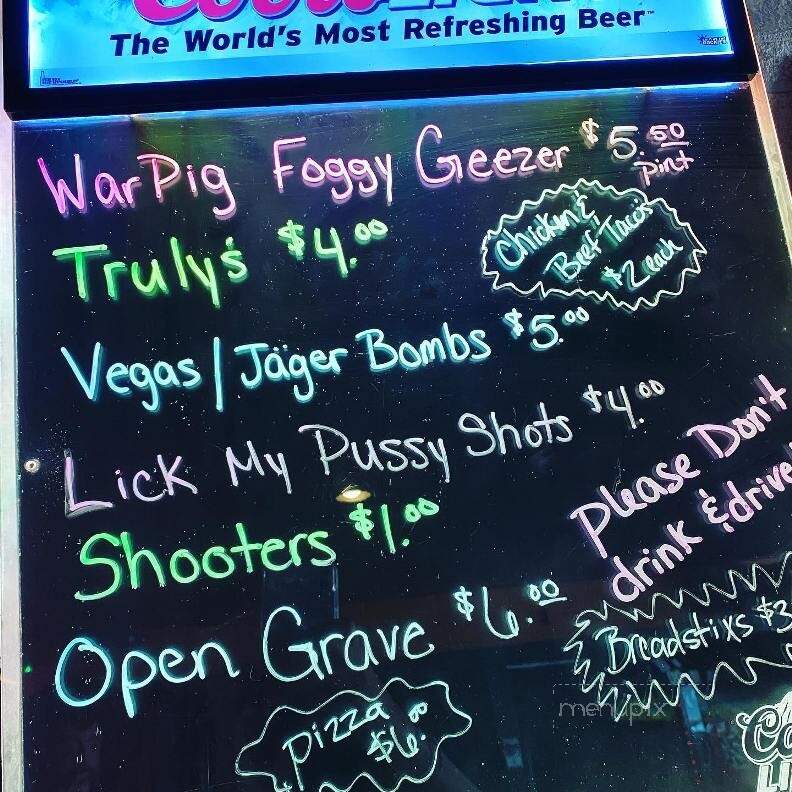 The World's Most Refreshing Beer™
WarPig Foggy Geezer $5.50 Pint
Truly's $4.00
Chicken &
Beef Tacos
$2 each
Vegas/Jäger Bombs $5.00
Lick My Pussy Shots $4.00
Please Don't
drink & drive
Shooters $1.00
Open Grave $6.00
Breadstixs $3
Pizza
$6.00
menupix